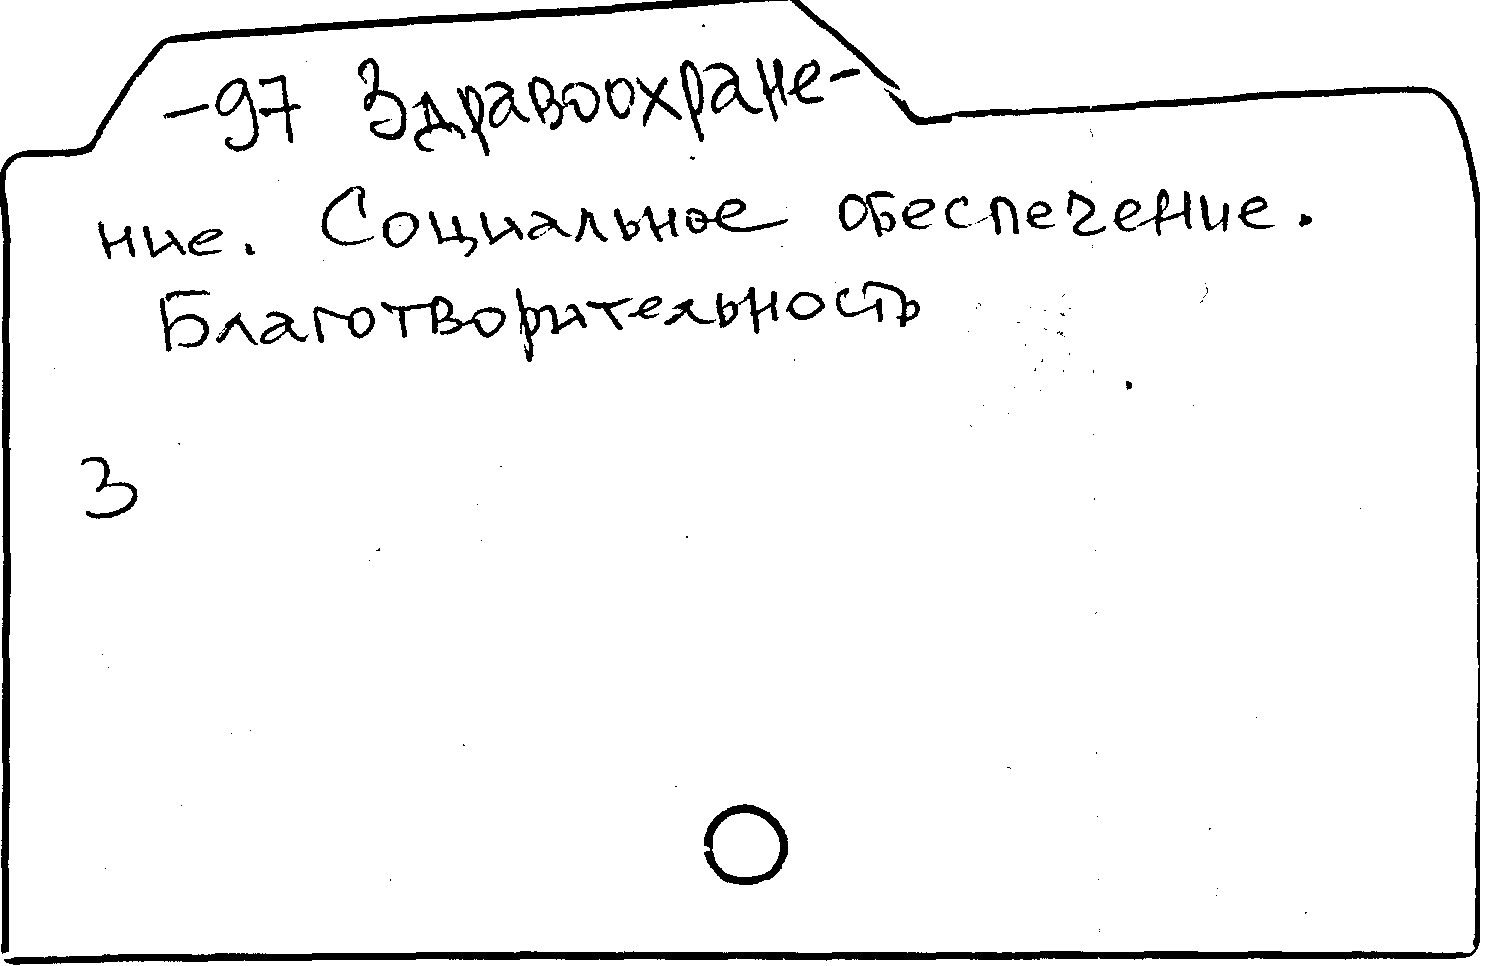 -97 Здравоохране-
ние. Социальное обеспечение.
Благотворительность
3